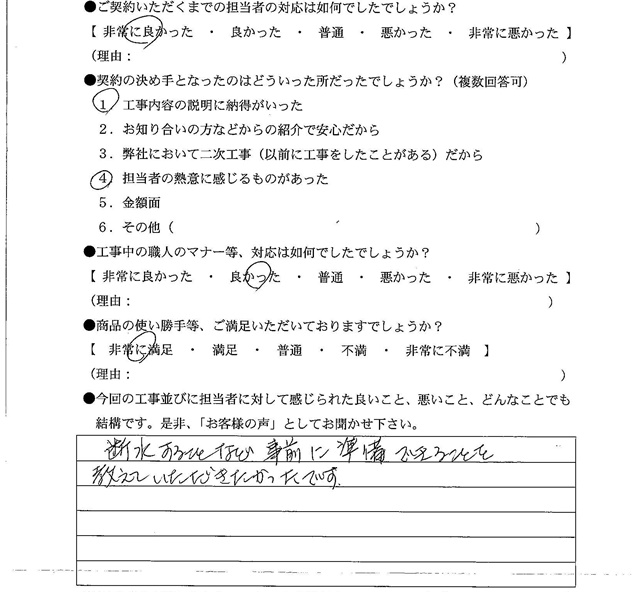 ●ご契約いただくまでの担当者の対応は如何でしたでしょうか？
【 非常に良かった ・ 良かった ・ 普通 ・ 悪かった ・ 非常に悪かった 】
（理由： ）
●契約の決め手となったのはどういった所だったでしょうか？（複数回答可）
1 工事内容の説明に納得がいった
2．お知り合いの方などからの紹介で安心だから
3．弊社において二次工事（以前に工事をしたことがある）だから
4 担当者の熱意に感じるものがあった
5．金額面
6．その他（ ）
●工事中の職人のマナー等、対応は如何でしたでしょうか？
【 非常に良かった ・ 良かった ・ 普通 ・ 悪かった ・ 非常に悪かった 】
（理由： ）
●商品の使い勝手等、ご満足いただいておりますでしょうか？
【 非常に満足 ・ 満足 ・ 普通 ・ 不満 ・ 非常に不満 】
（理由： ）
●今回の工事並びに担当者に対して感じられた良いこと、悪いこと、どんなことでも
結構です。是非、「お客様の声」としてお聞かせ下さい。
断水することなど事前に準備できることを
教えていただきたかったです。